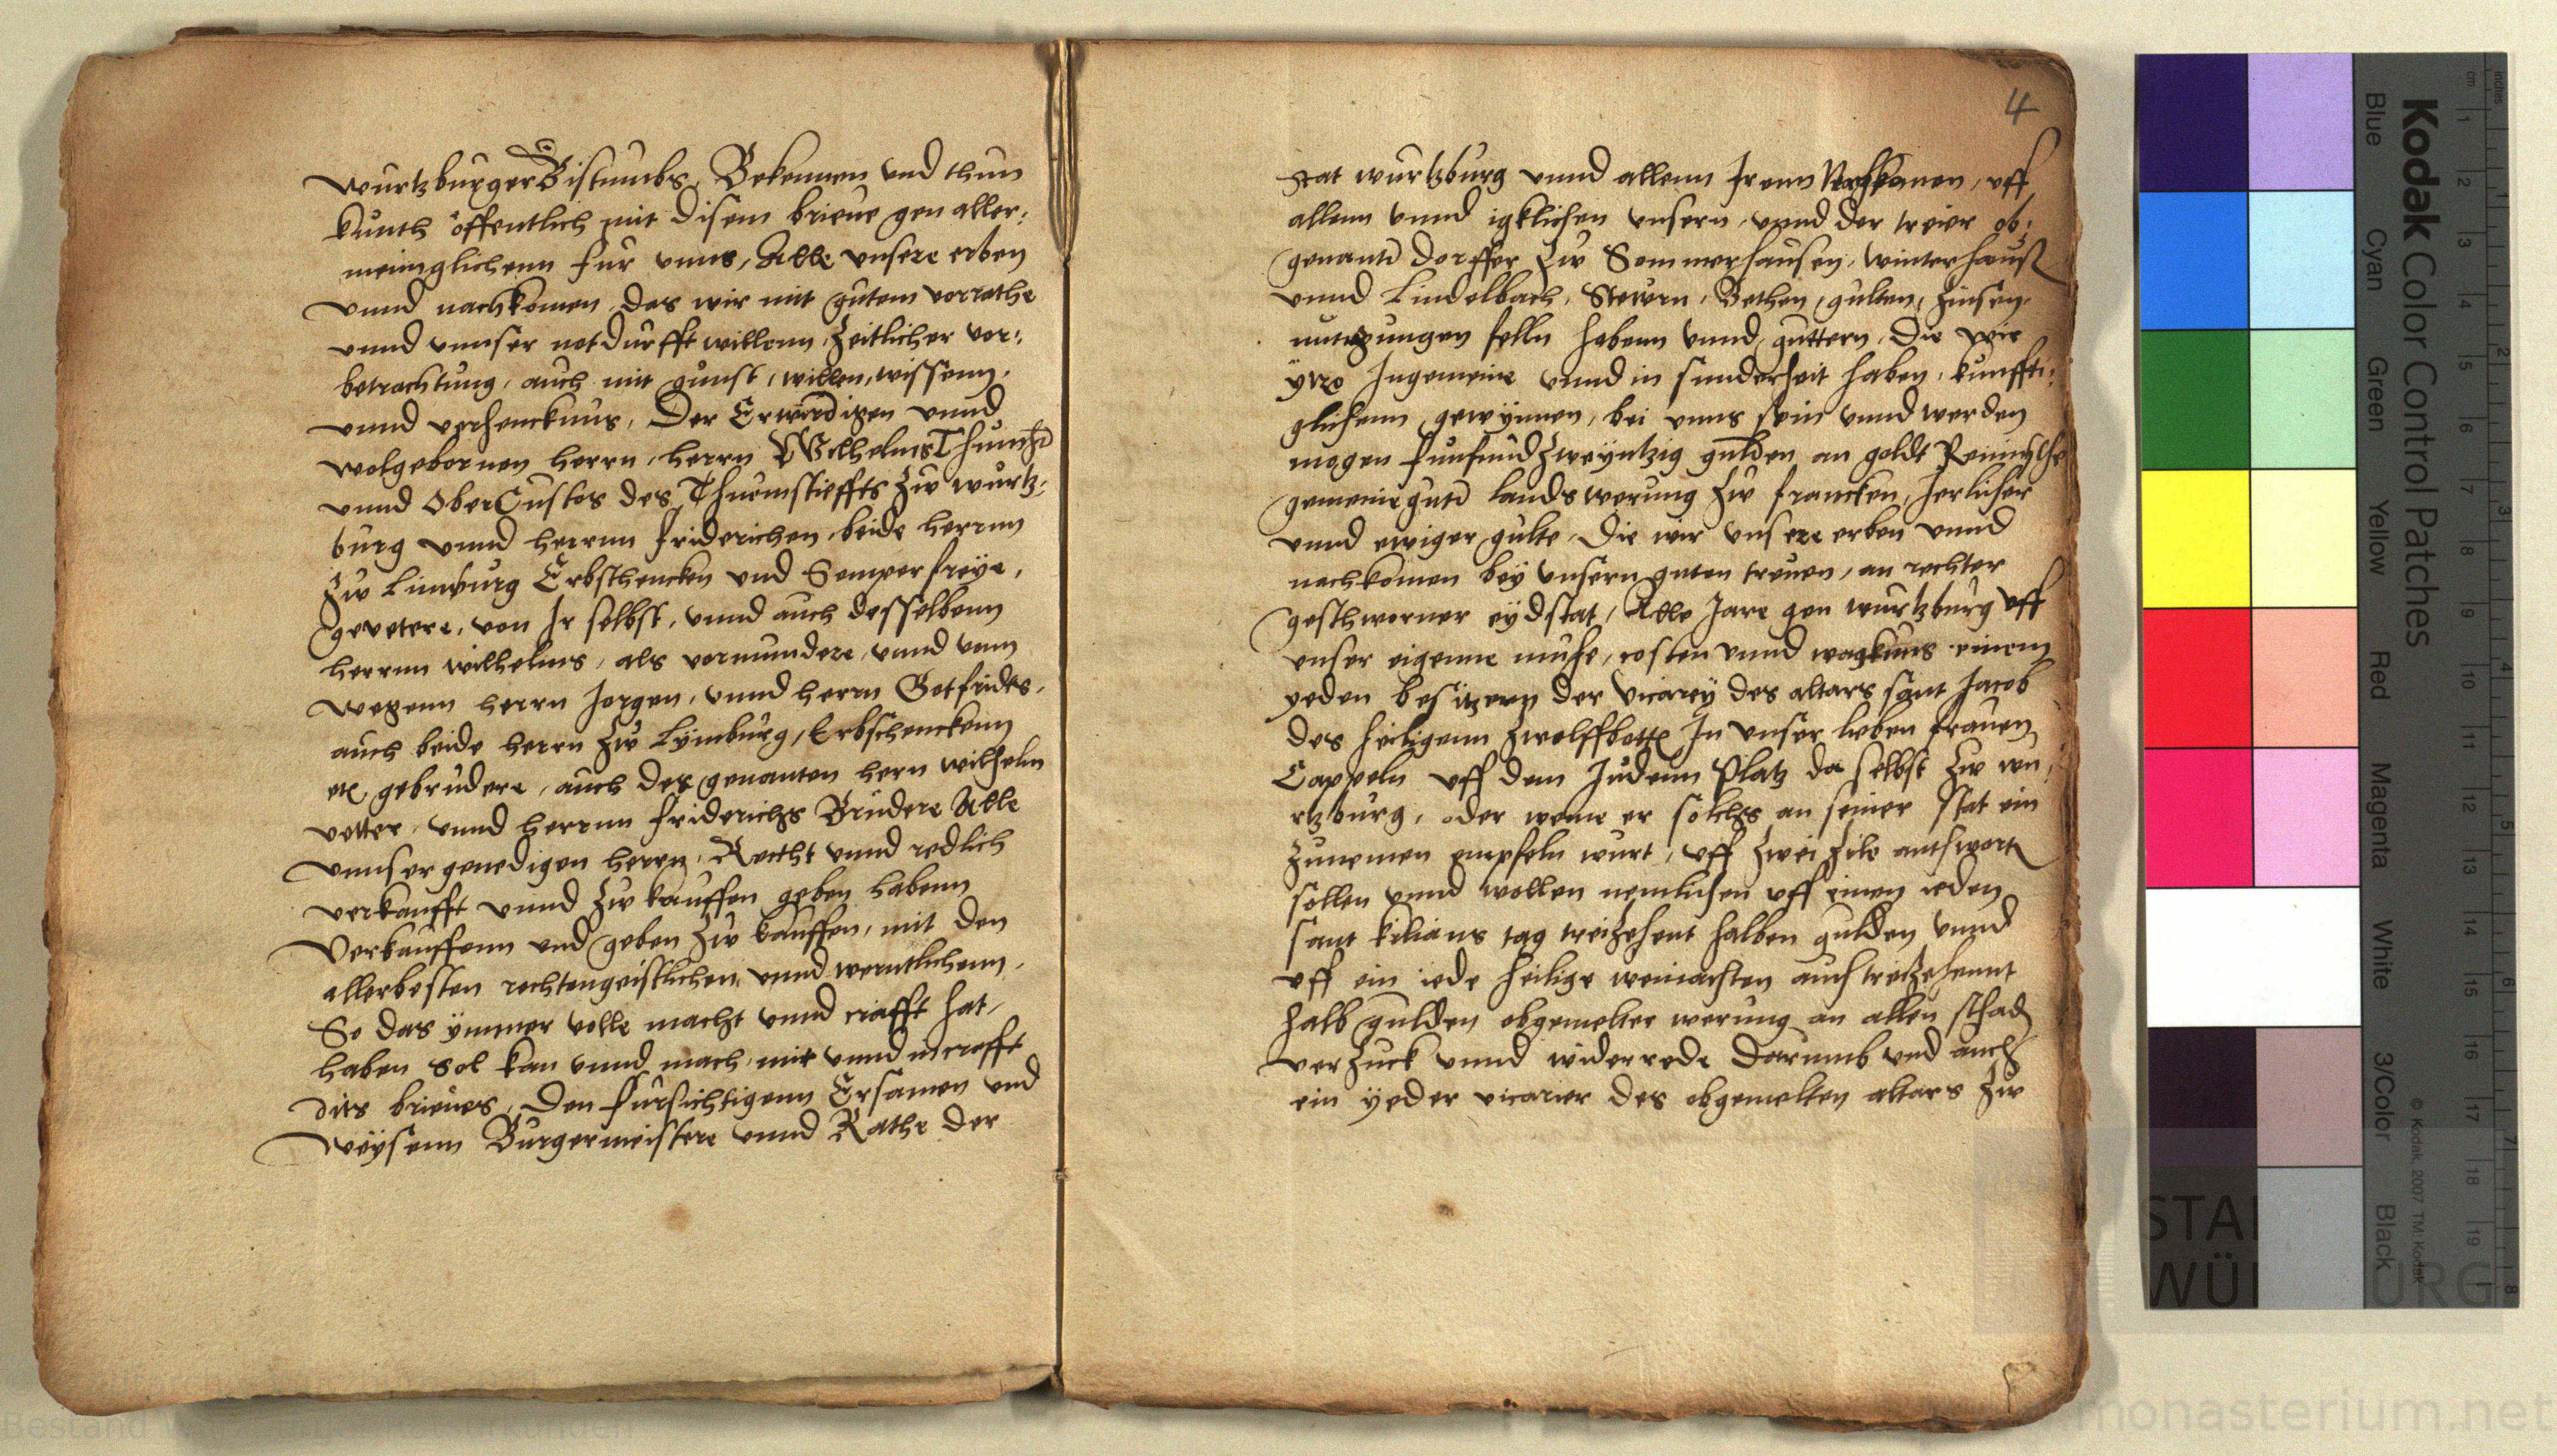 wurtzburger Bistumbs, Bekennen vnd thun
kunth öffentlich mit disem brieue gen aller:
meinglichenn fur vnns, Alle vnsere erben
vnnd nachkomen, das wir mit gutem vorrathe
vnnd vnnser notdurfft willenn, Zeitlicher vor:
betrachtung, auch mit gunst, willen, wissenn,
vnnd verhencknus, Der Erwirdigen vnnd
wolgebornen herrn, herrn Wilhelms Thumhe
vnnd OberCustos des Thuemstieffts Zw wurtz:
burg vnnd herrnn friderichen, beide herrnn
Zw Limburg Erbschencken vnd Semperfreye,
gevetere, von Ir selbst, vnnd auch desselbenn
herrnn wilhelms, als vormundere, vnnd vonn
wegenn herrn Jorgen, vnnd herrn Gotfrides,
auch beide herrn Zw Lÿmburg, Erbschenckenn
etc gebrudere, auch des genanten hern wilhelm
vetter, vnnd herrnn friderichs Brudere Alle
vnnser genedigen herrn, Rectht vnnd redlich
verkaufft vnnd Zw kauffen geben habenn
Verkauffenn vnd geben Zw kauffen, mit den
allerbesten rechten geistlichen, vnnd werntlichenn,
So das ymmer volle macht vnnd crafft hat,
haben sol kan vnnd mach, mit vnnd in crafft
dits brieues, Den fursichtigenn Ersamen vnd
Weysenn Burgermeistere vnnd Rathe der
4
Stat wurtzburg vnnd allenn Irenn Nachkomen, vff
allenn vnnd igklichen vnsern, vnnd der treier ob:
genante dorffer Zw Sommerhausen, winterhauß
vnnd Lindelbach, Stewrn, Bethen, gulten, Zinsen,
nutzungen felln habenn vnnd guttern, Die wir
ytzo Ingemeine vnnd in sunderheit haben, kunffti:
glichenn gewÿnnen, bei vnns sein vnnd werden
mogen funfundZweyntzig gulden an goldt Reinischer
gemeine gute lands werung Zw francken, Jerlicher
vnnd ewiger gulte, Die wir vnsere erben vnnd
nachkomen bey vnsern guten treuen, an rechter
gesthworner eydstat, Alle Jare gen wurtzburg vff
vnser eigenne muhe, costen vnnd wagknus einem
yeden besitzern der vicarey des altars sant Jacob
des heiligenn Zwolffbotte In vnser lieben frauen
Cappeln vff dem Judenn Platz da selbst Zw wu:
rtzburg, oder weme er solchs an seiner stat ein
Zunemen empfeln wurt, vff Zwei Zile anthwort
sollen vnnd wollen nemlichen vff einen ieden
sant kilians tag treiZehent halben gulden vnnd
vff ein iede heilige weinachten auch treiZehennt
halb gulden obgemelter werung an allen schad
verZuck vnnd widerrede darumb vnd auch
ein yeder vicarier des obgemelten altars Zw
Kodak Color Control Patches
Blue Cyan Green Yellow Red Magenta White 3/Color Black
© Kodak, 2007 TM: Kodak
cm 1 2 3 4 5 6 7 8 9 10 11 12 13 14 15 16 17 18 19
inches 1 2 3 4 5 6 7 8
monasterium.net